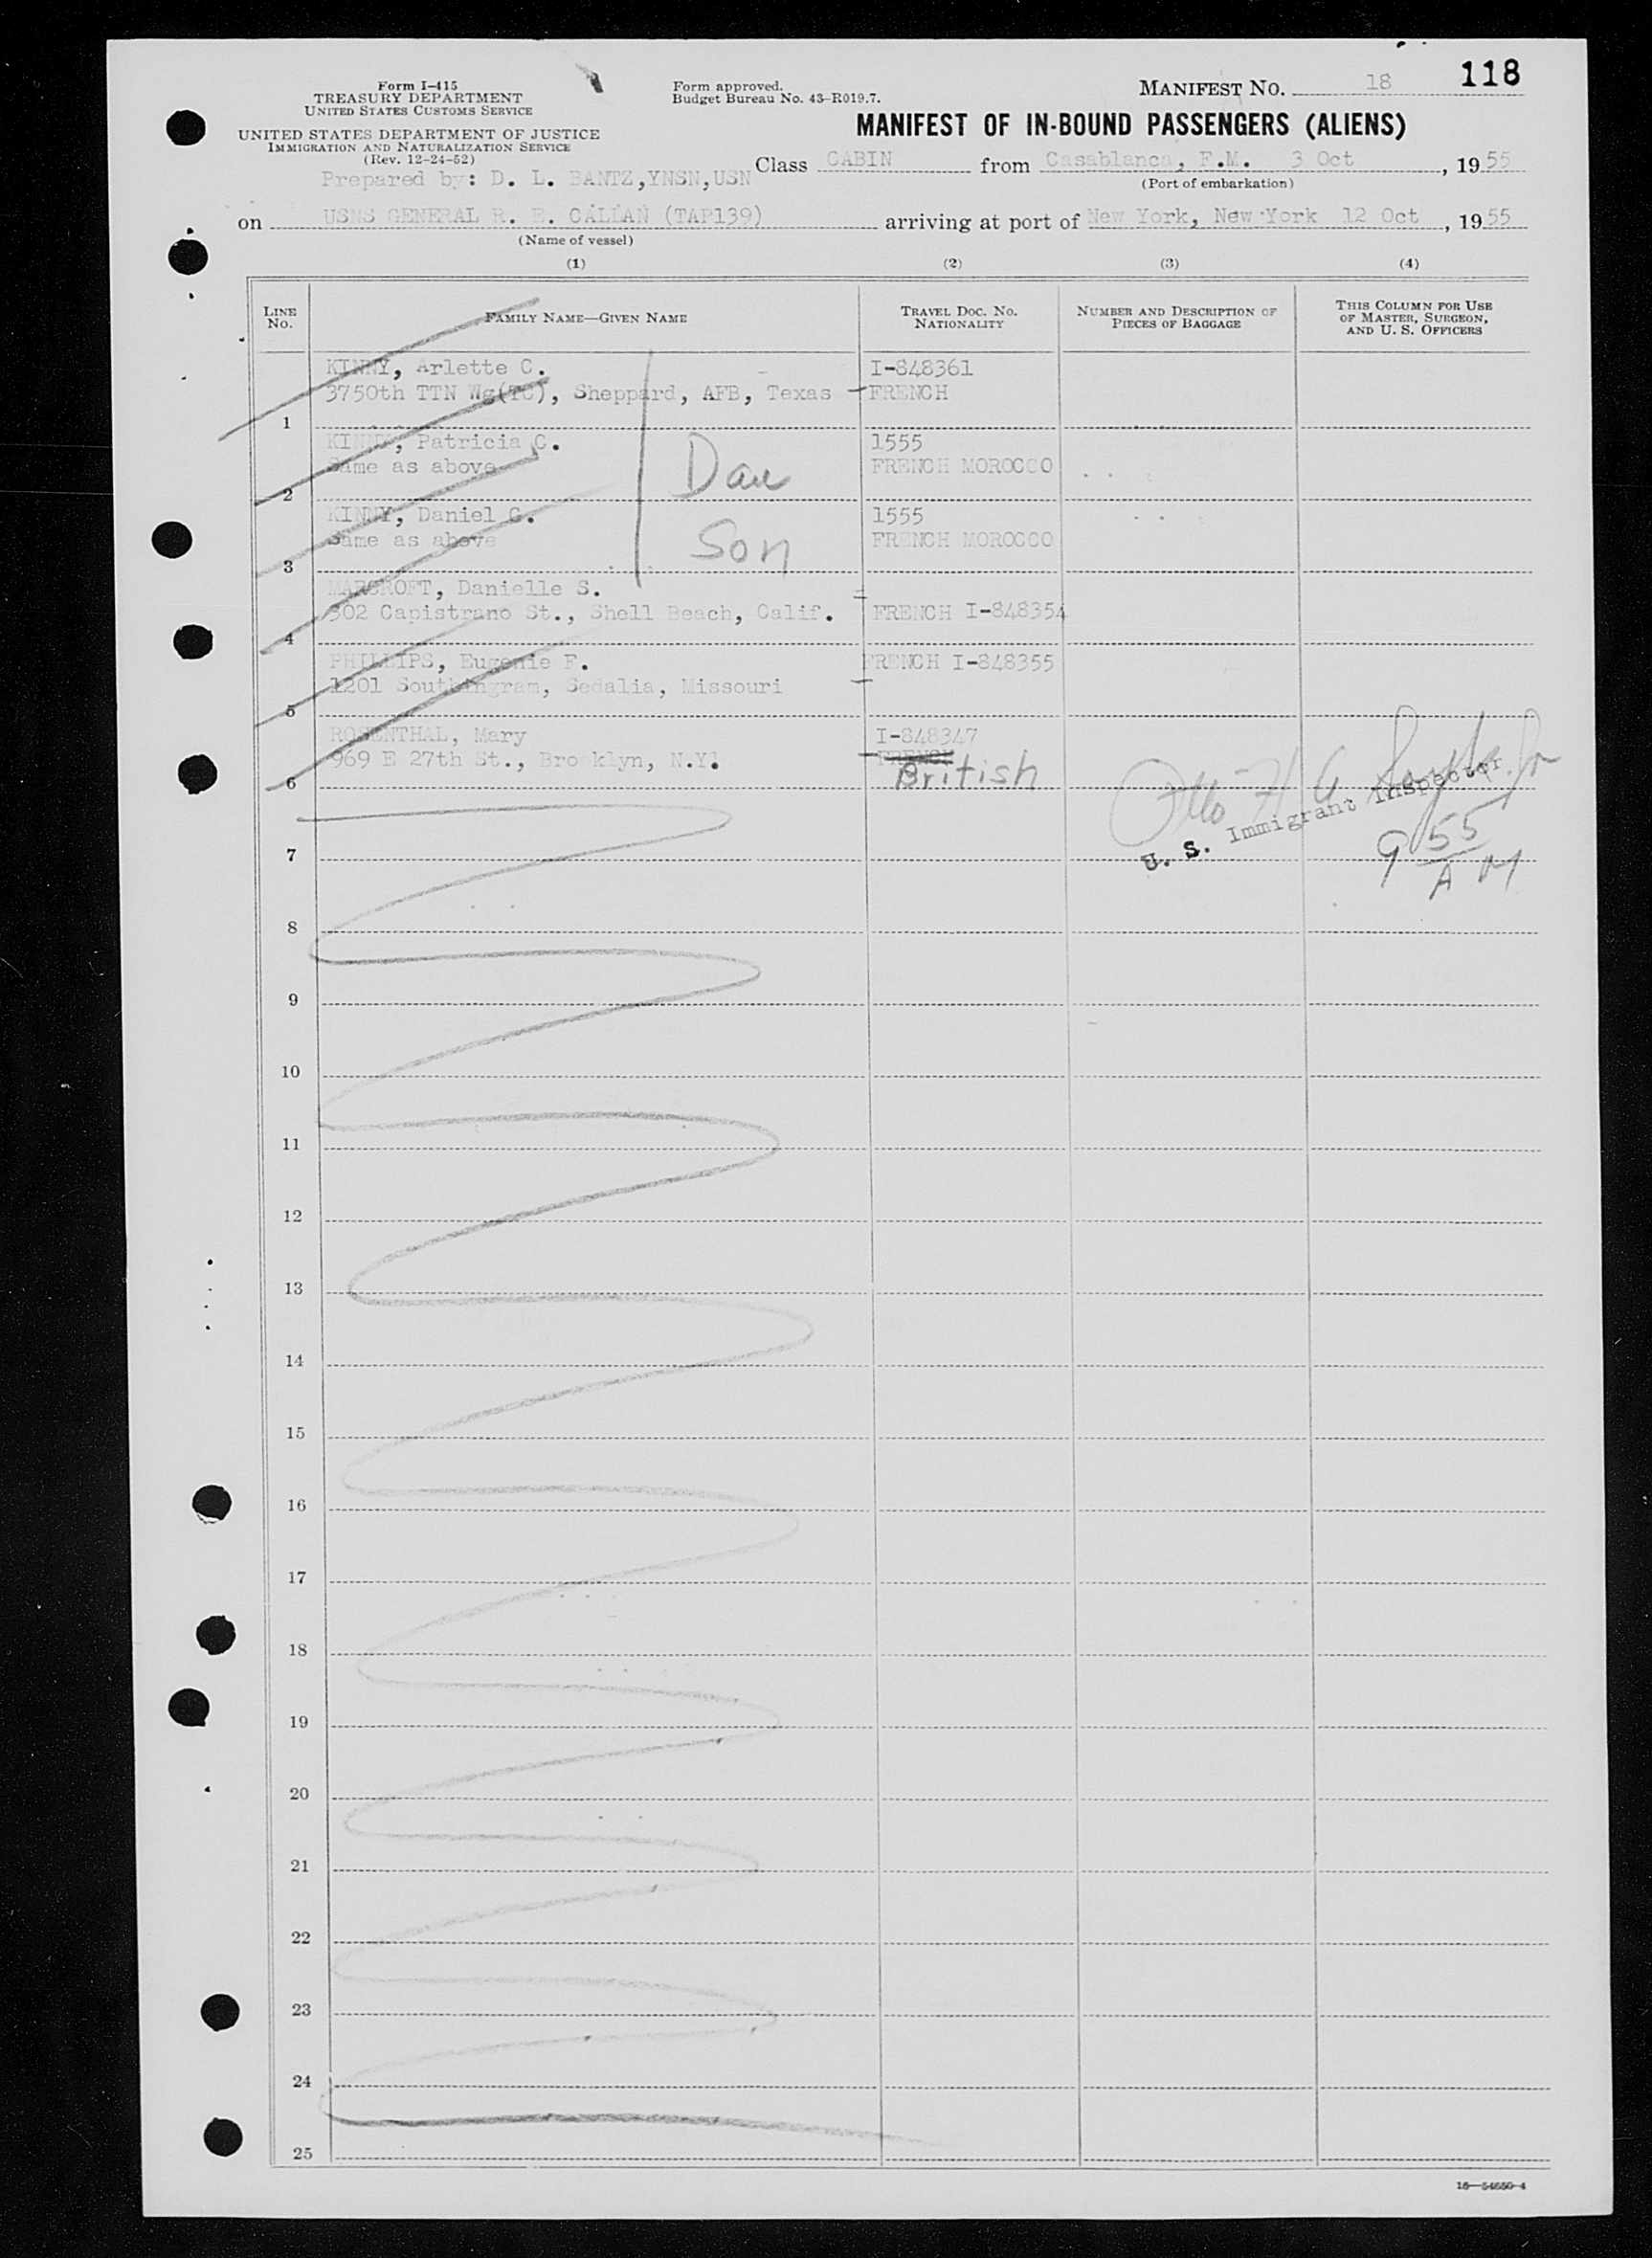 118
Form I-415
TREASURY DEPARTMENT
UNITED STATES CUSTOMS SERVICE
UNITED STATES DEPARTMENT OF JUSTICE
IMMIGRATION AND NATURALIZATION SERVICE
(Rev. 12-24-52)
Form approved.
Budget Bureau No. 43-R019.7.
MANIFEST NO. 18
MANIFEST OF IN-BOUND PASSENGERS (ALIENS)
Prepared by: D. L. BANTZ,YNSN,USN
Class CABIN from Casablanca, F.M. 3 Oct, 1955
(Port of embarkation)
on USNS GENERAL R. E. CALLAN (TAP139) arriving at port of New York, New York 12 Oct, 1955
(Name of vessel)
(1) (2) (3) (4)
LINE NO. FAMILY NAME—GIVEN NAME TRAVEL DOC. NO. NATIONALITY NUMBER AND DESCRIPTION OF PIECES OF BAGGAGE THIS COLUMN FOR USE OF MASTER, SURGEON, AND U. S. OFFICERS
KINNY, Arlette C. I-848361
3750th TTN Wg(TC), Sheppard, AFB, Texas FRENCH
1
KINNY, Patricia C. 1555
Same as above Dau FRENCH MOROCCO
2
KINNY, Daniel G. 1555
Same as above Son FRENCH MOROCCO
3
MARCROFT, Danielle S.
302 Capistrano St., Shell Beach, Calif. FRENCH I-848354
4
PHILLIPS, Eugenie F. FRENCH I-848355
1201 Southingram, Sedalia, Missouri
5
ROSENTHAL, Mary I-848347
969 E 27th St., Brooklyn, N.Y. FRENCH
6 British
U. S. Immigrant Inspector
7
9 55 AM
8
9
10
11
12
13
14
15
16
17
18
19
20
21
22
23
24
25
16—54650-4